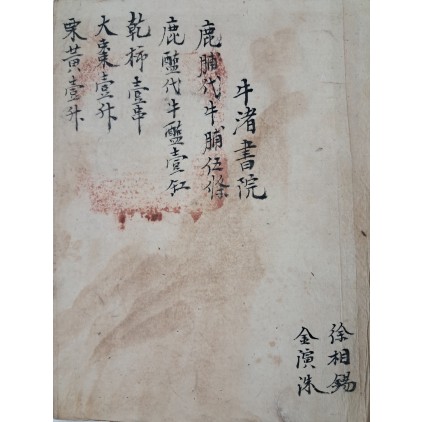 牛渚書院
鹿脯代牛脯伍條
鹿醢代牛醢壹缸
乾柿壹串
大棗壹升
栗黃壹升
徐相錫
金演洙